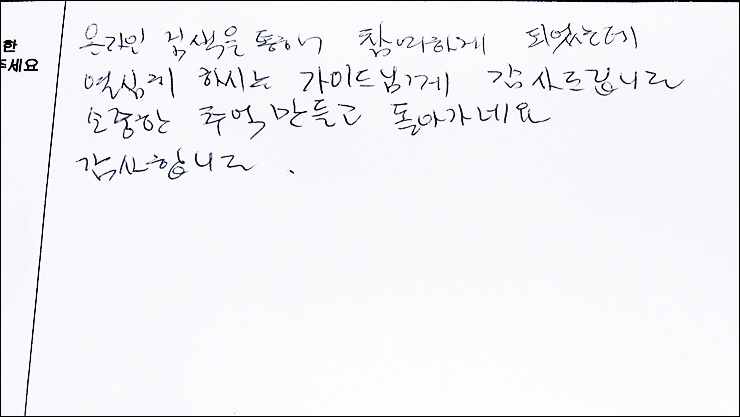 온라인 검색을 통해 참여하게 되었는데
한
열심히 하시는 가이드님께 감사드립니다
주세요
소중한 추억 만들고 돌아가네요
감사합니다.